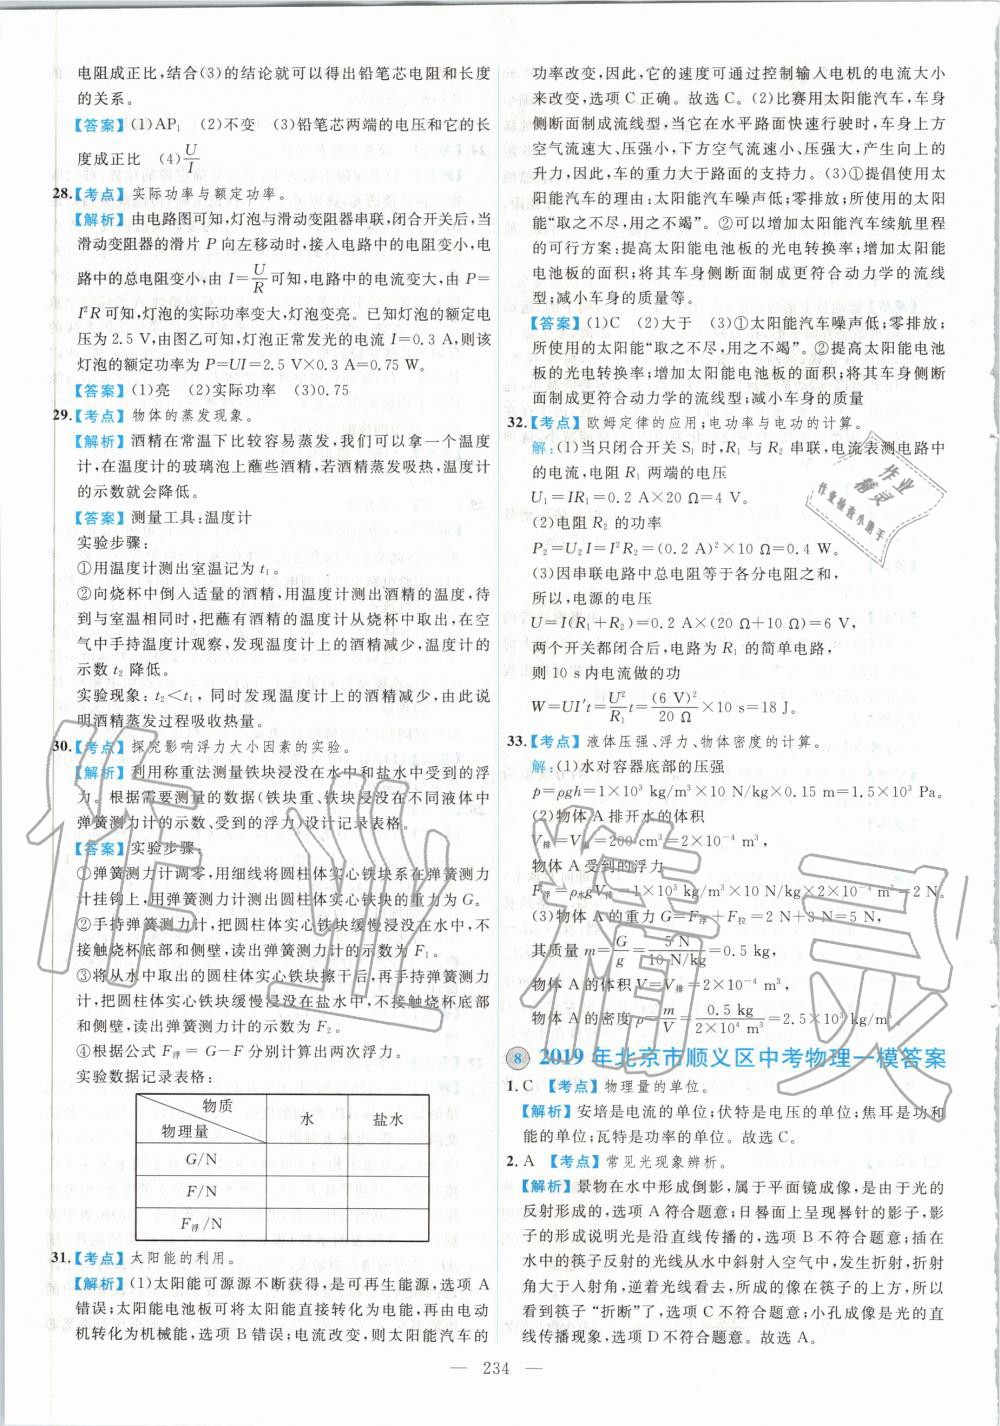 电阻成正比,结合(3)的结论就可以得出铅笔芯电阻和长度
的关系。
【答案】(1)AP₁ (2)不变 (3)铅笔芯两端的电压和它的长
度成正比 (4)U/I
28.【考点】实际功率与额定功率。
【解析】由电路图可知,灯泡与滑动变阻器串联,闭合开关后,当
滑动变阻器的滑片 P 向左移动时,接入电路中的电阻变小,电
路中的总电阻变小,由 I=U/R可知,电路中的电流变大,由 P=
I²R 可知,灯泡的实际功率变大,灯泡变亮。已知灯泡的额定电
压为 2.5 V,由图乙可知,灯泡正常发光的电流 I=0.3 A,则该
灯泡的额定功率为 P=UI=2.5 V×0.3 A=0.75 W。
【答案】(1)亮 (2)实际功率 (3)0.75
29.【考点】物体的蒸发现象。
【解析】酒精在常温下比较容易蒸发,我们可以拿一个温度
计,在温度计的玻璃泡上蘸些酒精,若酒精蒸发吸热,温度计
的示数就会降低。
【答案】测量工具:温度计
实验步骤:
①用温度计测出室温记为 t₁。
②向烧杯中倒入适量的酒精,用温度计测出酒精的温度,待
到与室温相同时,把蘸有酒精的温度计从烧杯中取出,在空
气中手持温度计观察,发现温度计上的酒精减少,温度计的
示数 t₂ 降低。
实验现象:t₂<t₁,同时发现温度计上的酒精减少,由此说
明酒精蒸发过程吸收热量。
30.【考点】探究影响浮力大小因素的实验。
【解析】利用称重法测量铁块浸没在水中和盐水中受到的浮
力。根据需要测量的数据(铁块重、铁块浸没在不同液体中
弹簧测力计的示数、受到的浮力)设计记录表格。
【答案】实验步骤:
①弹簧测力计调零,用细线将圆柱体实心铁块系在弹簧测力
计挂钩上,用弹簧测力计测出圆柱体实心铁块的重力为 G。
②手持弹簧测力计,把圆柱体实心铁块缓慢浸没在水中,不
接触烧杯底部和侧壁,读出弹簧测力计的示数为 F₁。
③将从水中取出的圆柱体实心铁块擦干后,再手持弹簧测力
计,把圆柱体实心铁块缓慢浸没在盐水中,不接触烧杯底部
和侧壁,读出弹簧测力计的示数为 F₂。
④根据公式 F浮=G−F 分别计算出两次浮力。
实验数据记录表格:
物质 水 盐水
物理量
G/N
F/N
F浮/N
31.【考点】太阳能的利用。
【解析】(1)太阳能可源源不断获得,是可再生能源,选项 A
错误;太阳能电池板可将太阳能直接转化为电能,再由电动
机转化为机械能,选项 B 错误;电流改变,则太阳能汽车的
功率改变,因此,它的速度可通过控制输入电机的电流大小
来改变,选项 C 正确。故选 C。(2)比赛用太阳能汽车,车身
侧断面制成流线型,当它在水平路面快速行驶时,车身上方
空气流速大、压强小,下方流速小、压强大,产生向上的
升力,因此,车的重力大于路面的支持力。(3)①提倡使用太
阳能汽车的理由:太阳能汽车噪声低;零排放;所使用的太阳
能“取之不尽,用之不竭”。②可以增加太阳能汽车续航里程
的可行方案:提高太阳能电池板的光电转换率;增加太阳能
电池板的面积;将其车身侧断面制成更符合动力学的流线
型;减小车身的质量等。
【答案】(1)C (2)大于 (3)①太阳能汽车噪声低;零排放;
所使用的太阳能“取之不尽,用之不竭”。②提高太阳能电池
板的光电转换率;增加太阳能电池板的面积;将其车身侧断面
制成更符合动力学的流线型;减小车身的质量
32.【考点】欧姆定律的应用;电功率与电功的计算。
解:(1)当只闭合开关 S₁ 时,R₁ 与 R₂ 串联,电流表测电路中
的电流,电阻 R₁ 两端的电压
U₁=IR₁=0.2 A×20 Ω=4 V。
(2)电阻 R₂ 的功率
P₂=U₂I=I²R₂=(0.2 A)²×10 Ω=0.4 W。
(3)因串联电路中总电阻等于各分电阻之和,
所以,电源的电压
U=I(R₁+R₂)=0.2 A×(20 Ω+10 Ω)=6 V,
两个开关都闭合后,电路为 R₁ 的简单电路,
则 10 s 内电流做的功
W=UI′t=U²/R₁ t=(6 V)²/20 Ω×10 s=18 J。
33.【考点】液体压强、浮力、物体密度的计算。
解:(1)水对容器底部的压强
p=ρgh=1×10³ kg/m³×10 N/kg×0.15 m=1.5×10³ Pa。
(2)物体 A 排开水的体积
V排=V浸=200 cm³=2×10⁻⁴ m³,
物体 A 受到的浮力
F浮=ρ水gV排=1×10³ kg/m³×10 N/kg×2×10⁻⁴ m³=2 N。
(3)物体 A 的重力 G=F浮+F拉=2 N+3 N=5 N,
其质量 m=G/g=5 N/10 N/kg=0.5 kg,
物体 A 的体积 V=V排=2×10⁻⁴ m³,
物体 A 的密度 ρ=m/V=0.5 kg/2×10⁻⁴ m³=2.5×10³ kg/m³。
8 2019 年北京市顺义区中考物理一模答案
1. C 【考点】物理量的单位。
【解析】安培是电流的单位;伏特是电压的单位;焦耳是功和
能的单位;瓦特是功率的单位。故选 C。
2. A 【考点】常见光现象辨析。
【解析】景物在水中形成倒影,属于平面镜成像,是由于光的
反射形成的,选项 A 符合题意;日晷面上呈现晷针的影子,
形成的影子说明光是沿直线传播的,选项 B 不符合题意;插在
水中的筷子反射的光线从水中斜射入空气中,发生折射,折射
角大于入射角,逆着光线看去,所成的像在筷子的上方,所以
看到筷子“折断”了,选项 C 不符合题意;小孔成像是光的直
线传播现象,选项 D 不符合题意。故选 A。
— 234 —
作业
精灵
作业检查小助手
作业精灵